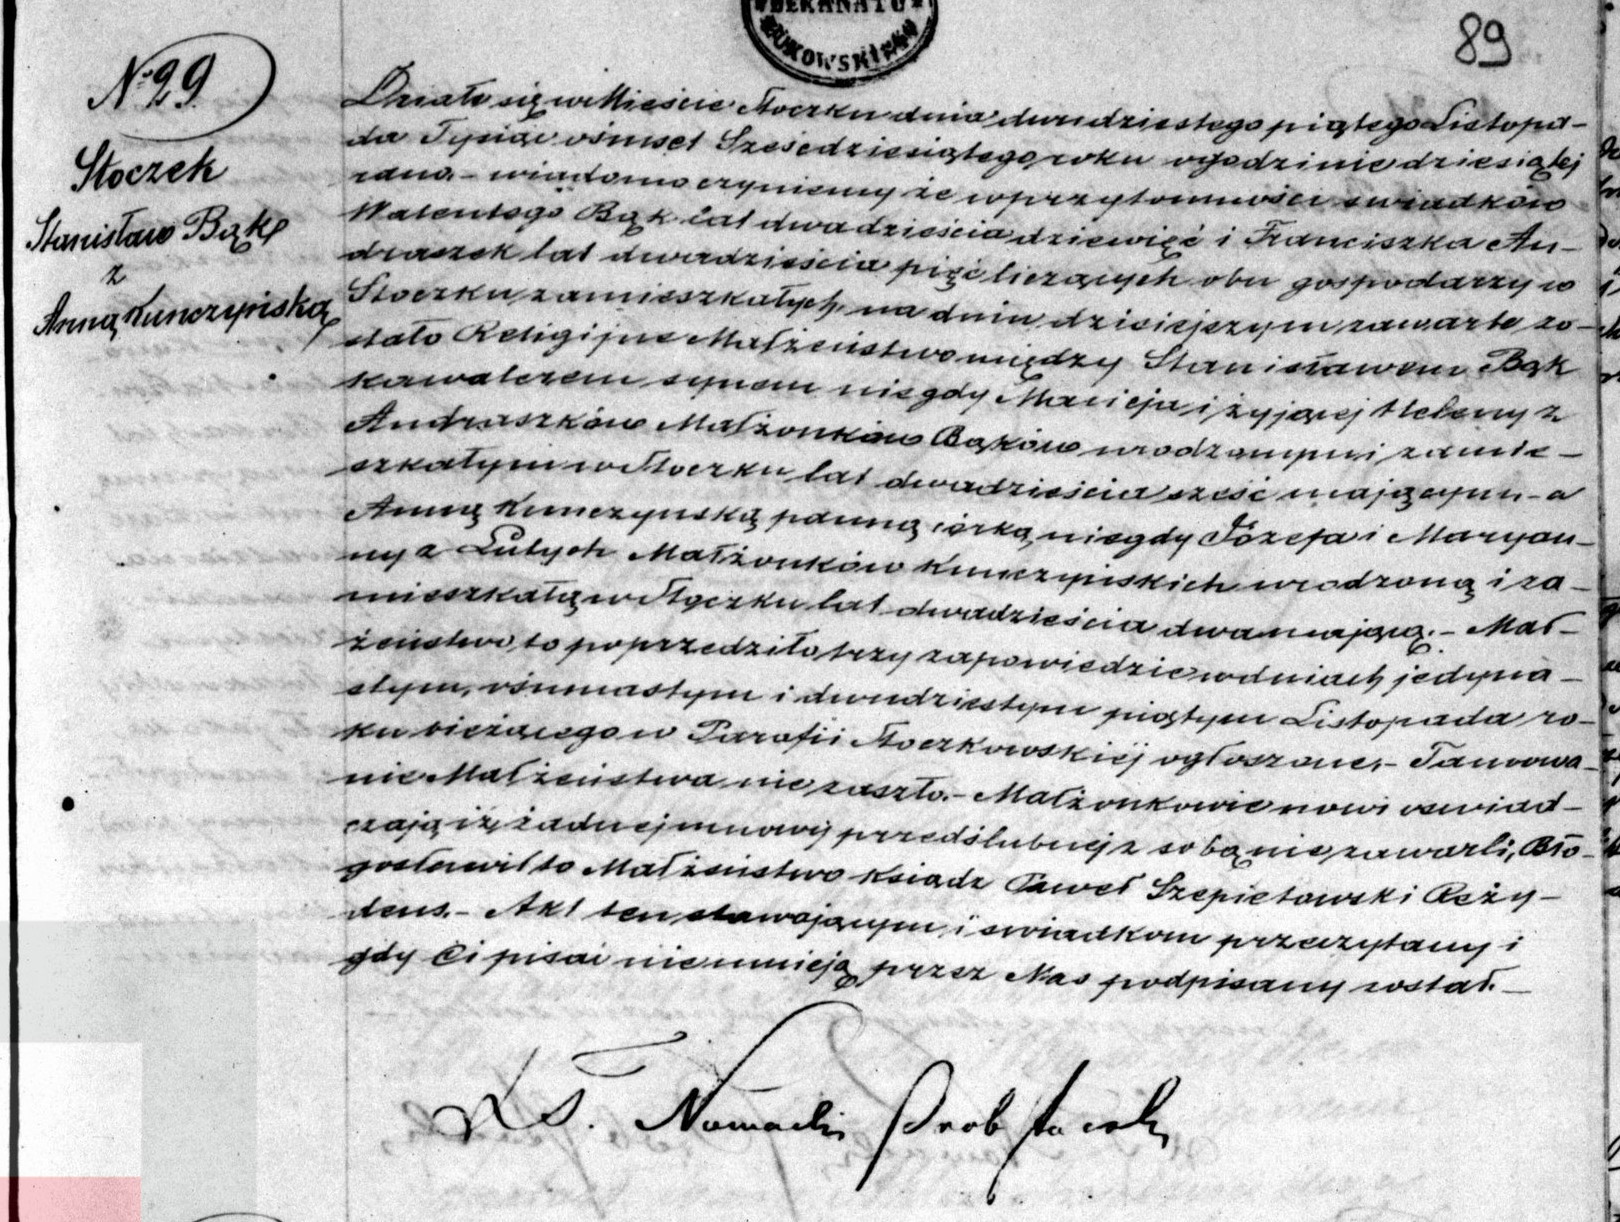 DEKANATU
ŁUKOWSKIEGO
89
N 29.
Stoczek
Stanisław Bąk
z
Anną Kunczyńską
Działo się w Mieście Stoczku dnia dwudziestego piątego Listopa-
da Tysiąc ośmset Sześćdziesiątego roku o godzinie dziesiątej
rano. – wiadomo czyniemy że w przytomności świadków
Walentego Bąk lat dwadzieścia dziewięć i Franciszka An-
draszek lat dwadzieścia pięć liczących obu gospodarzy w
Stoczku zamieszkałych, na dniu dzisiejszym zawarte zo-
stało Religijne Małżeństwo między Stanisławem Bąk
kawalerem synem niegdy Macieja i żyjącej Heleny z
Andraszków Małżonków Bąków urodzonym i zamie-
szkałym w Stoczku lat dwadzieścia sześć mającym – a
Anną Kunczyńską panną córką niegdy Józefa i Maryan-
ny z Lutych Małżonków Kunczyńskich urodzoną i za-
mieszkałą w Stoczku lat dwadzieścia dwa mającą. – Mał-
żeństwo to poprzedziło trzy zapowiedzie w dniach jedyna-
stym, ośmnastym i dwudziestym piątym Listopada ro-
ku bieżącego w Parafii Stoczkowskiéj ogłoszone. – Tamowa-
nie Małżeństwa nie zaszło. – Małżonkowie nowi oświad-
czają iż żadnej umowy przedślubnej z sobą nie zawarli, Bło-
gosławił to Małżeństwo Ksiądz Paweł Szepietowski Rezy-
dens. – Akt ten stawającym i świadkom przeczytany i
gdy Ci pisać nie umieją przez Nas podpisany został. –
X S. Prob